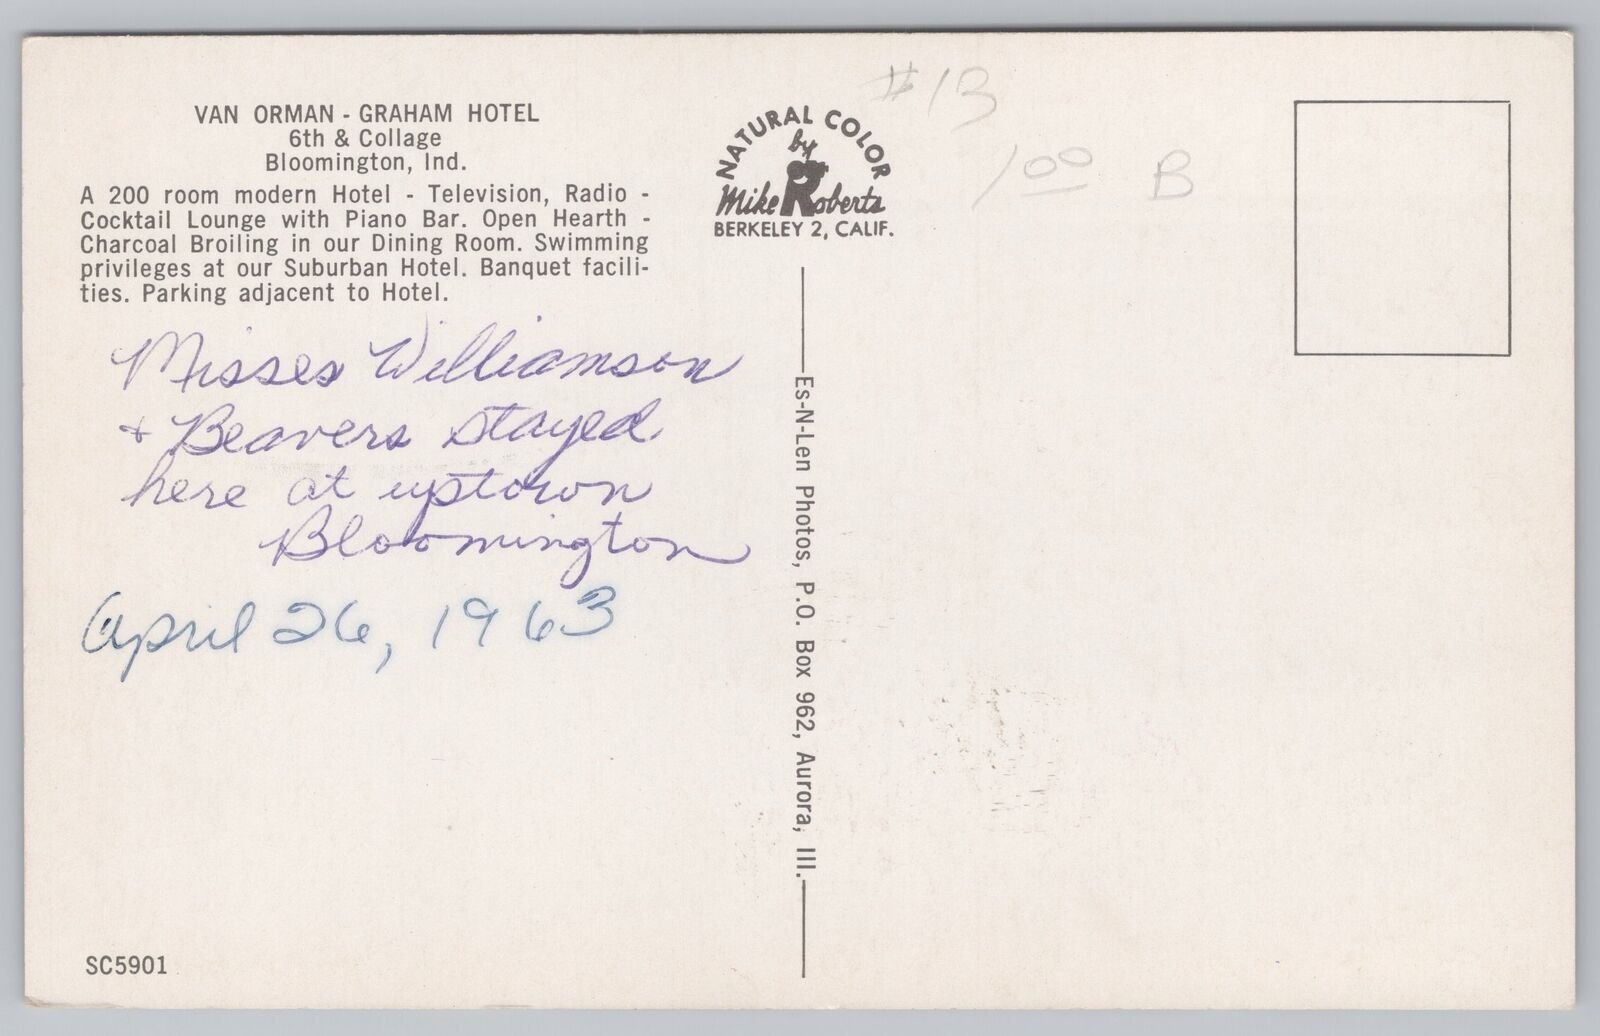 VAN ORMAN - GRAHAM HOTEL
6th & Collage
Bloomington, Ind.
A 200 room modern Hotel - Television, Radio -
Cocktail Lounge with Piano Bar. Open Hearth -
Charcoal Broiling in our Dining Room. Swimming
privileges at our Suburban Hotel. Banquet facili-
ties. Parking adjacent to Hotel.
Misses Williamson
+ Beavers stayed
here at uptown
Bloomington
April 26, 1963
SC5901
NATURAL COLOR
by
Mike Roberts
BERKELEY 2, CALIF.
Es-N-Len Photos, P.O. Box 962, Aurora, Ill.
#13
100 B